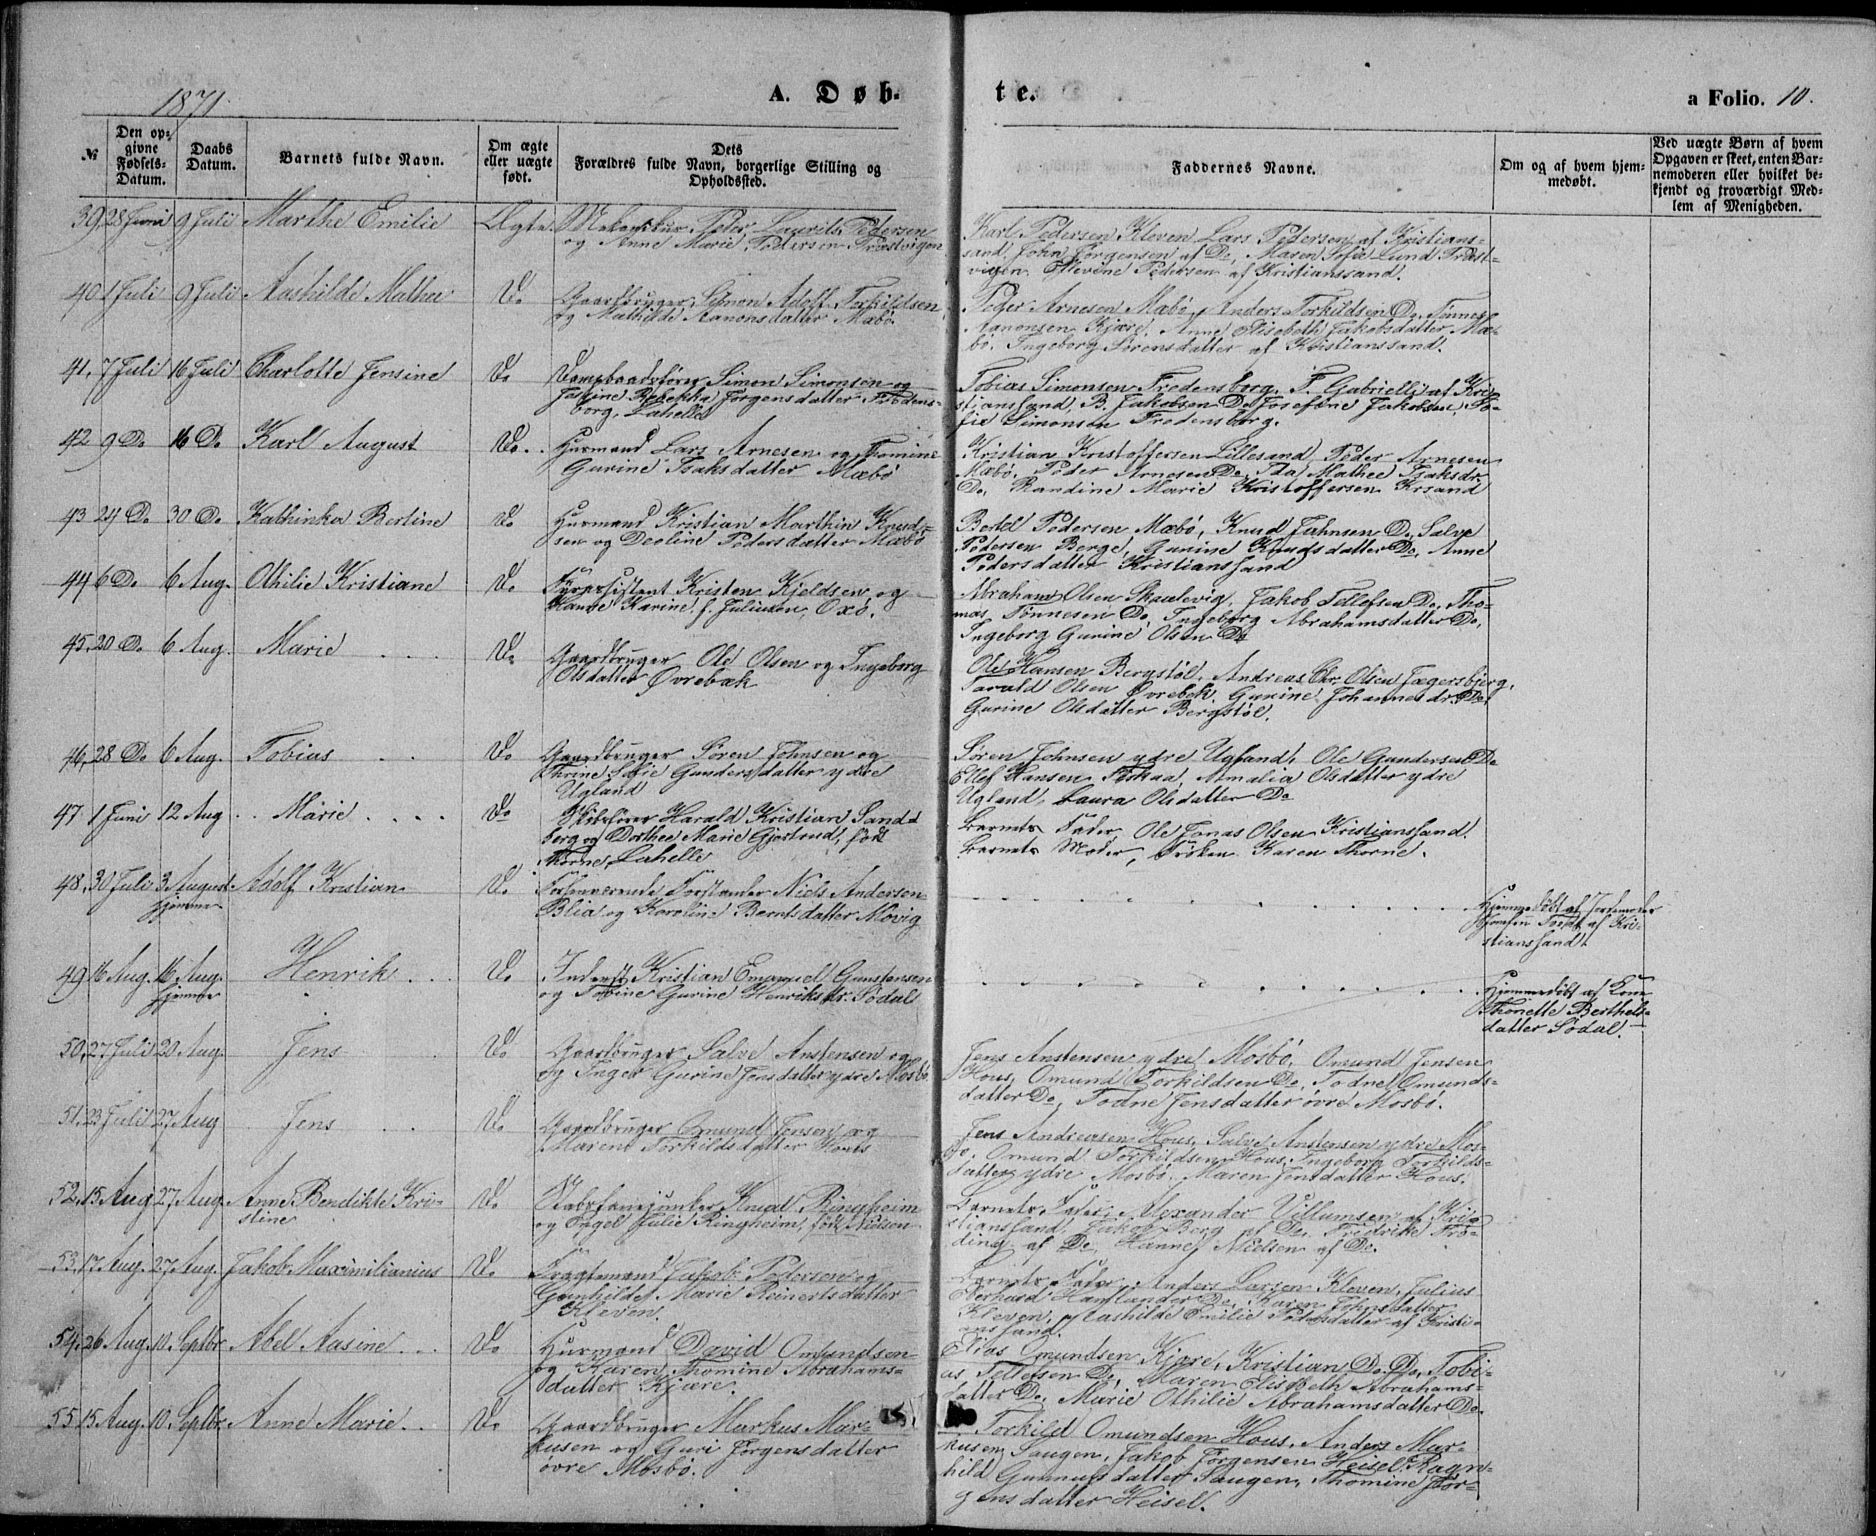 1871.
A. Døb-
te.
a Folio. 10.
№
Den op-
givne
Fødsels-
Datum.
Daabs
Datum.
Barnets fulde Navn.
Om ægte
eller uægte
født.
Dets
Forældres fulde Navn, borgerlige Stilling og
Opholdssted.
Faddernes Navne.
Om og af hvem hjem-
medøbt.
Ved uægte Børn af hvem
Opgaven er skeet, enten Bar-
nemoderen eller hvilket be-
kjendt og troværdigt Med-
lem af Menigheden.
39. 28 Juni 9 Juli Marthe Emilie Ægte Peder Laurits Pedersen
og Anne Marie Pedersen
Karl Pedersen Kleven Lars Pedersen af Kristians-
sand, John Jørgensen af Do, Maren Sofie Lund
Pedersen af Kristianssand.
40. 1 Juli 9 Juli Mathilde Mathee Do Gaardbruger Simon Adolf Torkildsen
og Mathilde Aanonsdatter Mæbø
Peder Arnesen Mæbø, Anders Torkildsen Do, Tønnes
Aanonsen Kjære, Anne Elisebeth Jakobsdatter Mæ-
bø, Ingeborg Sørensdatter af Kristianssand.
41. 7 Juli 16 Juli Charlotte Jensine Do Simon Simonsen og
Rebekka Jørgensdatter Fredens-
borg, Lahelle
Tobias Simonsen Fredensborg, F. Gabrielli af Kri-
stianssand, B. Jakobsen Do Josefine Jakobsen, So-
fie Simonsen Fredensborg.
42 9 Do 16 Do Karl August Do. Husmand Lars Arnesen og Tomine
Gurine Isaksdatter Mæbø
Kristian Kristoffersen Lillesand Peder Arnesen
Mæbø, Peder Arnesen Do, Ida Mathee Isaksdr.
Do, Randine Marie Kristoffersen Krsand
43 24 Do 30 Do Kathinka Bertine Do Husmand Kristian Marthin Knuds-
sen og Deoline Pedersdatter Mæbø
Bertel Pedersen Mæbø, Knud Jahnsen Do, Salve
Pedersen Berge, Gunine Knudsdatter Do, Anne
Pedersdatter Kristianssand
44 6 Do 6 Aug. Othilie Kristiane Do Fyrassistent Kristen Kjeldsen og
Hanne Karine f. Juliusen, Oxø.
Abraham Olsen Skaalevig, Jakob Tellefsen Do, Tho-
mas Tønnesen Do, Ingeborg Abrahamsdatter Do,
Ingeborg Gurine Olsen Do
45. 20 Do 6 Aug. Marie Do Gaardbruger Ole Olsen og Ingeborg
Olsdatter Øvrebæk
Ole Hansen Bergstøl, Andreas Chr. Olsen Jægersbjerg,
Tarald Olsen Øvrebæk, Gurine Johannesdr. Do,
Gurine Olsdatter Bergstøl.
46. 28 Do 6 Aug. Tobias Do Gaardbruger Søren Johnsen og
Thrine Sofie Gundersdatter ydre
Ugland
Søren Johnsen ydre Ugland, Ole Gundersen Do
Ellef Hansen Fiskaa, Amalia Olsdatter ydre
Ugland, Laura Olsdatter Do
47 1 Juni 12 Aug Marie Do Skibsfører Harald Kristian Sand-
berg og Dorthea Marie Gjertrud, født
Thorne, Lahelle
Barnets Fader, Ole Jonas Olsen Kristianssand.
Barnets Moder, Frøken Karen Thorne.
48. 30 Juli 3 August Adolf Kristian Do Forhenværende Forstander Niels Andersen
hjemme
Blia og Karoline Berntsdatter Møvig
Hjemmedøbt af Jordemoder
af Kri-
stianssand
49 16 Aug. 16 Aug. Henrik Do Inderst Kristian Emanuel Gunstensen
hjemme
og Tobine Gurine Henriksdr. Sødal
Hjemmedøbt af Kone
Thonette Berthels-
datter Sødal.
50. 27 Juli 20 Aug. Jens Do Gaardbruger Salve Anstensen og
og Inger Gurine Jensdatter ydre Mosbø
Jens Anstensen ydre Mosbø, Omund Jensen
Hous, Omund Torkildsen Do, Todne Omunds-
datter Do, Todne Jensdatter øvre Mosbø.
51. 23 Juli 27 Aug Jens Do Gaardbruger Omund Jensen og
Maren Torkildsdatter Hous
Jens Andreasen Hous, Salve Anstensen ydre Mos-
bø, Omund Torkildsen Hous, Ingeborg Torkilds-
datter ydre Mosbø, Maren Jensdatter Hous.
52. 13 Aug 27 Aug. Anne Bendikte Kri-
stine
Do Stabsfanejunker Knud Ringheim
og Engel Julie Ringheim, født Nielsen
Barnets Fader, Alexander Villumsen af Kri-
stianssand, Jakob Berg af Do, Fredrikke Frø-
ding af Do, Hanne Nielsen af Do.
53. 17 Aug. 27 Aug. Jakob Maximilianius Do Fragtemand Jakob Pedersen og
Gunhilde Marie Reinertsdatter
Kleven.
Barnets Fader, Anders Larsen Kleven, Julius
Gerhard Do, Karen Johnsdatter
Kleven, Mathilde Emilie Pedersdatter af Kristi-
anssand.
54. 26 Aug. 10. Septbr. Abel Aasine Do Husmand David Omundsen
og Karen Thomine Abrahams-
datter Kjære.
Elias Omundsen Kjære, Kristian Do. Do, Tobi-
as Tellefsen Do, Maren Elisebeth Abrahams-
datter Do, Marie Othilie Abrahamsdatter Do.
55. 15 Aug. 10. Septbr. Anne Marie Do Gaardbruger Markus Mar-
kusen og Guri Jørgensdatter
øvre Mosbø.
Torkild Omundsen Hous, Anders Mar-
kusen Saugen, Jakob Jørgensen Heisel, Ragn-
hild Gunnufsdatter Saugen, Thomine Jør-
gensdatter Heisel.